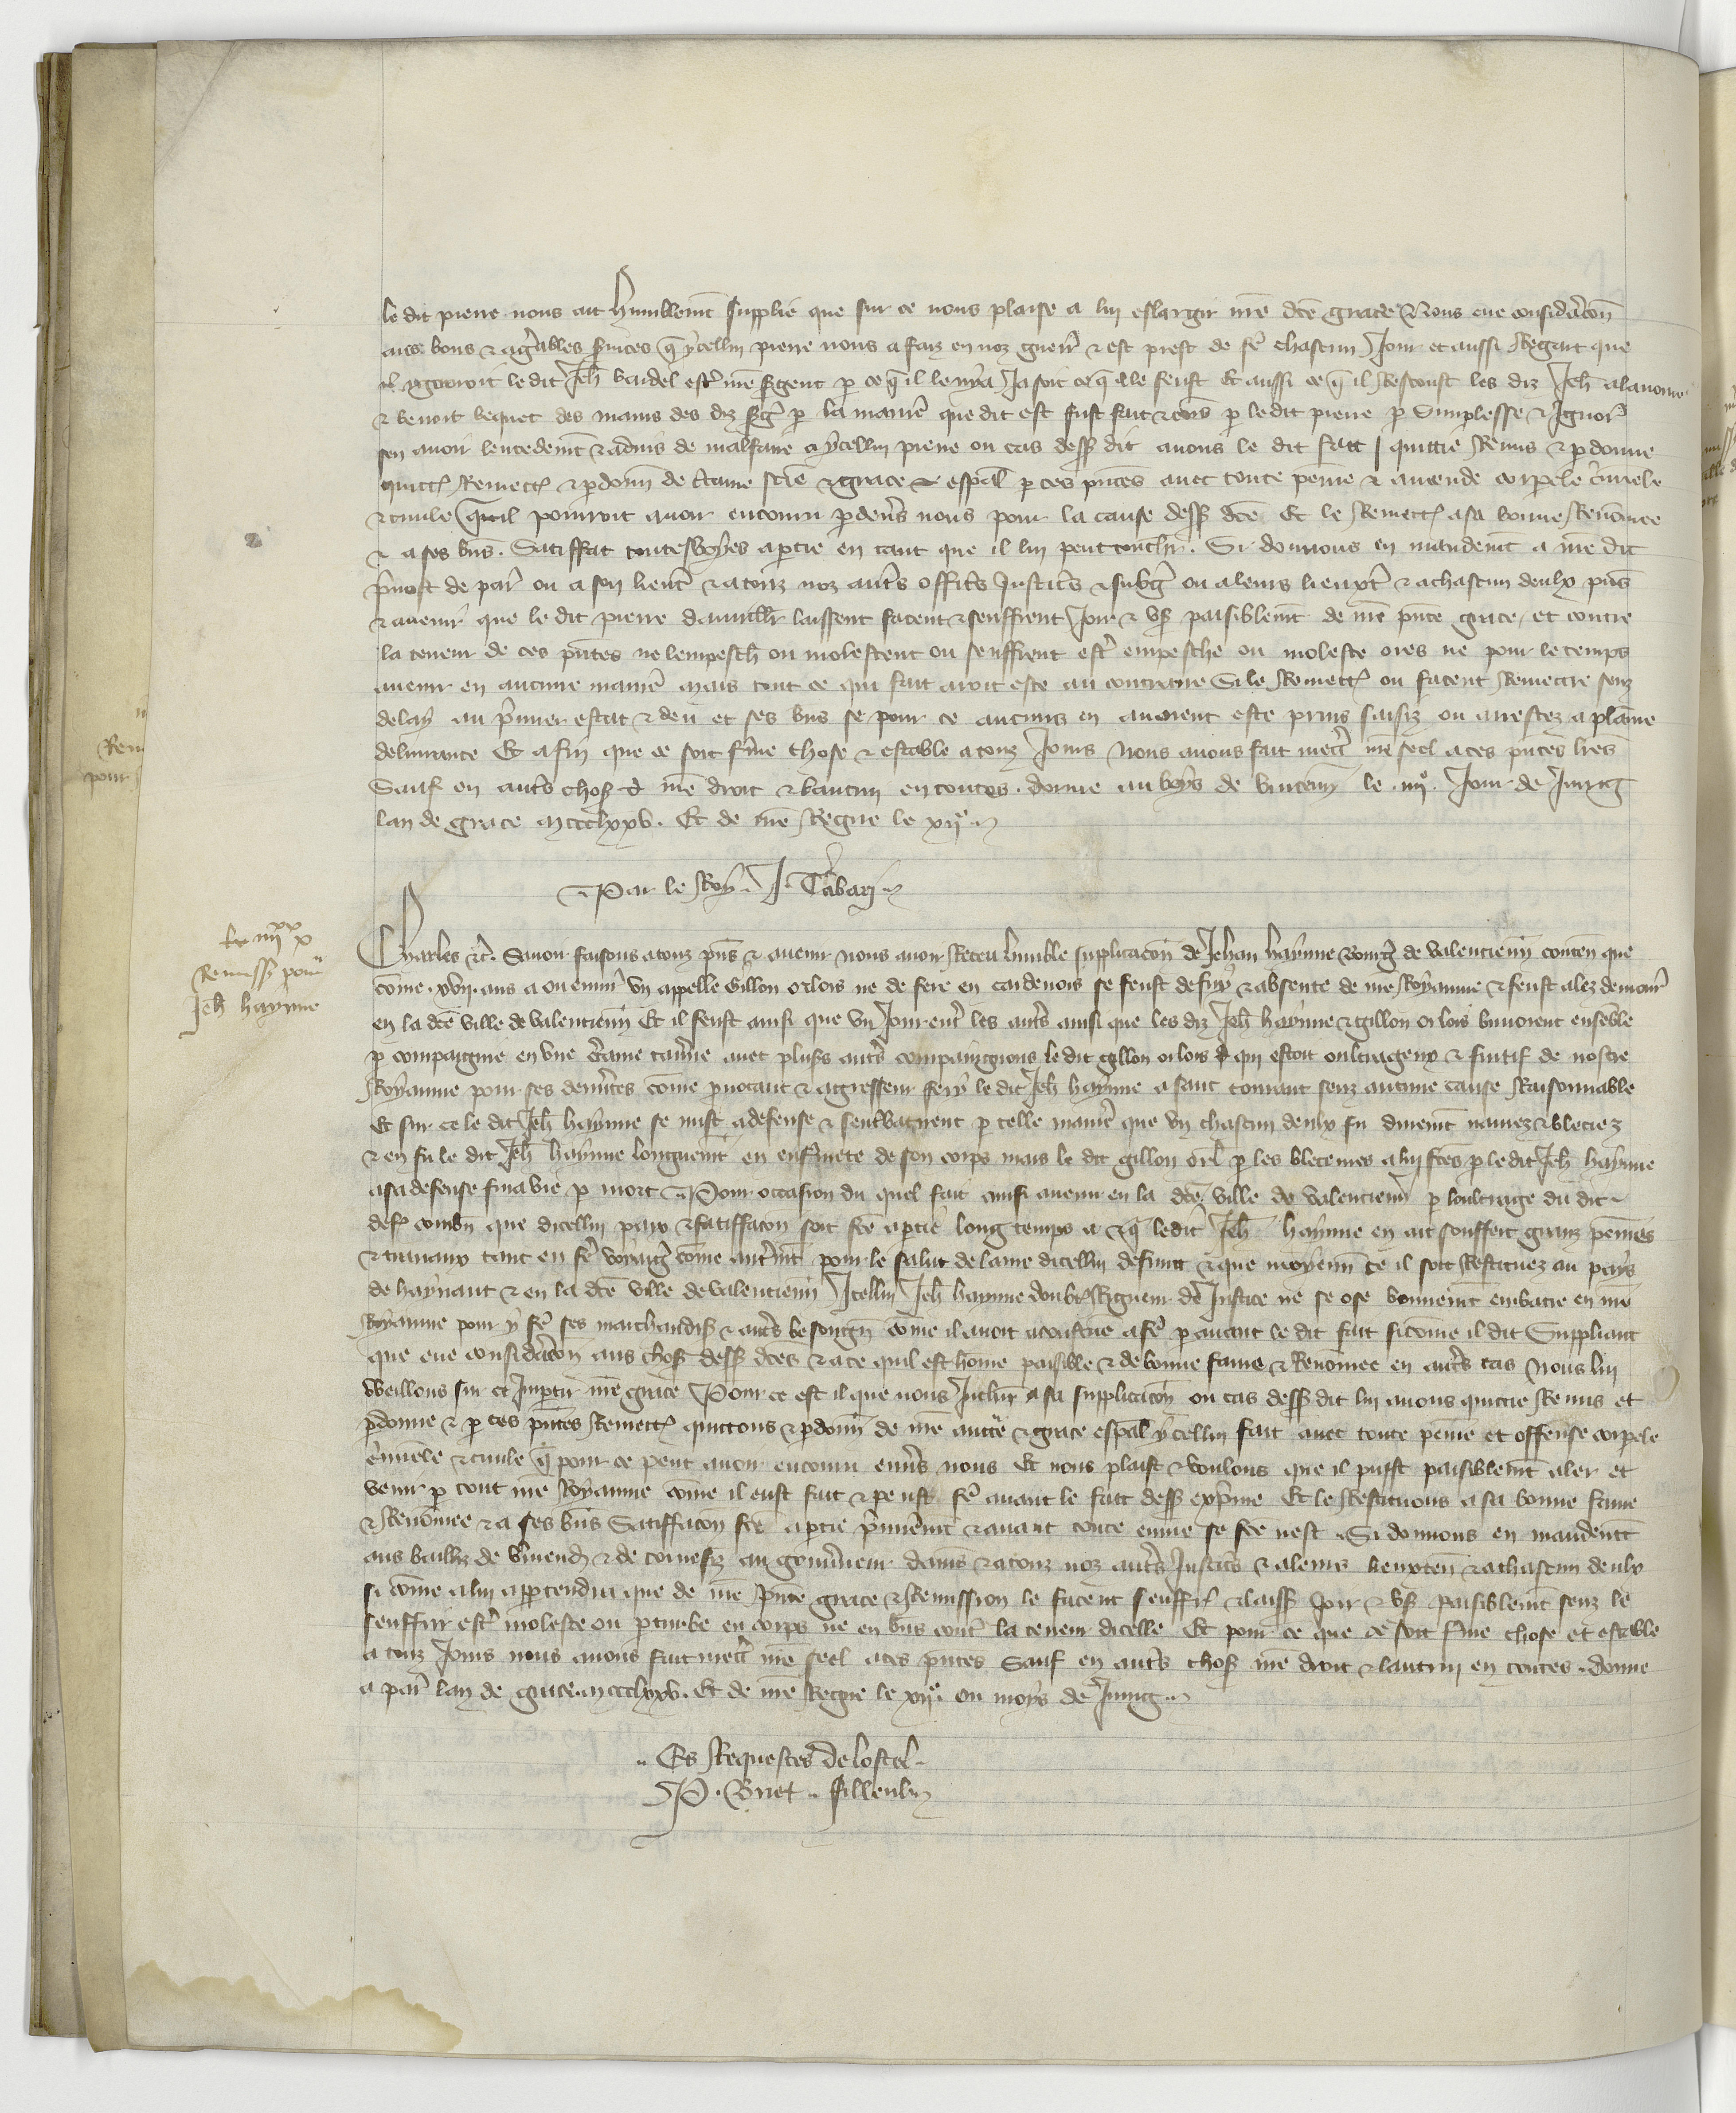 le dit pierre nous ait humblemt supplie que sur ce nous plaise a lui eslargir nre dce grace Nous eue consideracon
aus bons & agreables services q ycellui pierre nous a faiz en noz guerr & est prest de fe chascun Jour et aussi Regart que
il ignoroit le dit Jeh bardel estr nre sergent p ce q il le nya Ja soit ce q il le feust Et aussi ce q il Rescoust les diz Jeh
& benoit bequet des mains des diz serg p la manie que dit est fust fait & cois p le dit pierre p Simplesse & Ignor
sen avoir lencedemt & advis de malfaire a ycellui pierre ou cas dess dit avons le dit fait quittie Remis & pdonne
quitt Remett & pdonn de ctaine scie & grace espal p ces pntes avec toute peine & amende corpele cimele
& civile quil pourroit avoir encouru pdevs nous pour la cause dess dce Et le Remett a sa bonne Renomee
& a ses bns. Satiffait toutesvoyes a ptie en tant que il lui peut touchr. Si donnons en mandemt a nre dit
pvost de par ou a son lieut & a touz noz auts offics Justics & subg ou a leurs lieuxt & a chascun deulx pns
& avenir que le dit pierre laissent facent & seuffrent Joir & us paisiblemt de nre pnte grace, et contre
la teneur de ces pntes ne lempesch ou molestent ou seuffrent estr empesche ou moleste ores ne pour le temps
avenir en aucune manie mais tout ce qui fait aroit este au contraire Si le Remett ou facent Remectre senz
delay au pmier estat & deu et ses bns se pour ce aucuns en avoient este prins saisiz ou arrestez a plaine
delivrance Et afin que ce soit ferme chose & estable a touz Jours Nous avons fait mectr nre seel a ces pntes lres
Sauf en auts chos nre droit & lautrui en toutes. donne au boys de vincenn le .iiij. Jour de Juing
lan de grace mccclxxv. Et de nre Regne le xije
Par le Roy. J. Tabari
iiijxx x
Remissi pour
Jeh hayme
Charles &c. Savoir faisons a touz pns & avenir nous avoir Receu humble supplicacon de Jehan hayme bourg de valencienn conten que
come .xvij. ans a ou environ un appelle Gillon orlois ne de fere en cardenois se feust defuy & absente de nre Royaume & feust alez demour
en la dce ville de valencienn Et il feust ainsi que un Jour entr les auts ainsi que les diz Jeh hayme & gillon orlois buvoient ensemble
p compaignie en une ctaine taverne avec plus auts compaignons le dit gillon orlois qui estoit oultrageux & fuitif de nostre
Royaume pour ses demites come pvocant & aggresseur fery le dit Jeh hayme a sanc courant senz aucune cause Raisonnable
Et sur ce le dit Jeh hayme se mist a defense & sentrbatirent p telle manie que un chascun deulx fu duremt navrez & bleciez
& en fu le dit Jeh hayme longuemt en enfermete de son corps mais le dit gillon orl p les bleceures a lui fces p le dit Jeh hayme
a sa defense fina vie p mort Pour occasion du quel fait ainsi avenu en la dce ville de valencienn p loultrage du dit
def combn que dicellui paix & satiffacon soit fce a ptie long temps a & q le dit Jeh hayme en ait souffert granz peines
& travaux tant en fe voyaig come autremt pour le salut de lame dicellui defunct & que moyenn ce il soit Restituez au pays
de haynaut & en la dce ville de valencienn Icellui Jeh hayme doubt Rigueur de Justice ne se ose bonnemt embatre en nre
Royaume pour y fe ses marchandis & auts besongn come il avoit acoustume a fe p avant le dit fait sicome il dit Suppliant
que eue consideracon aus chos dess dces & a ce quil est home paisible & de bonne fame & Renomee en auts cas Nous lui
weillons sur ce Impartir nre grace Pour ce est il que nous Inclin a sa supplicacon ou cas dess dit lui avons quictie Remis et
pdonne & p ces pntes Remett quittons & pdonn de nre aucte & grace espal ycellui fait avec toute peine et offense corpele
cimele & civile q pour ce peut avoir encouru envs nous Et nous plaist & voulons que il puist paisiblemt aler et
venir p tout nre Royaume come il eust fait & peust fe avant le fait dess exprime Et le Restituons a sa bonne fame
& Renomee & a ses bns Satiffacon fce a ptie pmieremt & avant toute euvre se fce nest. Si donnons en mandemt
aus bailliz de vmend & de tournesis au gouvneur damis & a touz noz auts Justics & a leurs lieuxten & a chascun deulx
si come a lui apptendra que de nre pnte grace & Remission le facent seuffr & laiss Joir & us paisiblemt senz le
seuffrir estr moleste ou pturbe en corps ne en bns contr la teneur dicelle Et pour ce que ce soit ferme chose et estable
a touz Jours nous avons fait mectr nre seel a ces pntes Sauf en auts chos nre droit & lautrui en toutes. donne
a par lan de grace. mccclxxv. Et de nre Regne le xije ou moys de Juing
Es Requestes de lostel
P. Briet. filleul